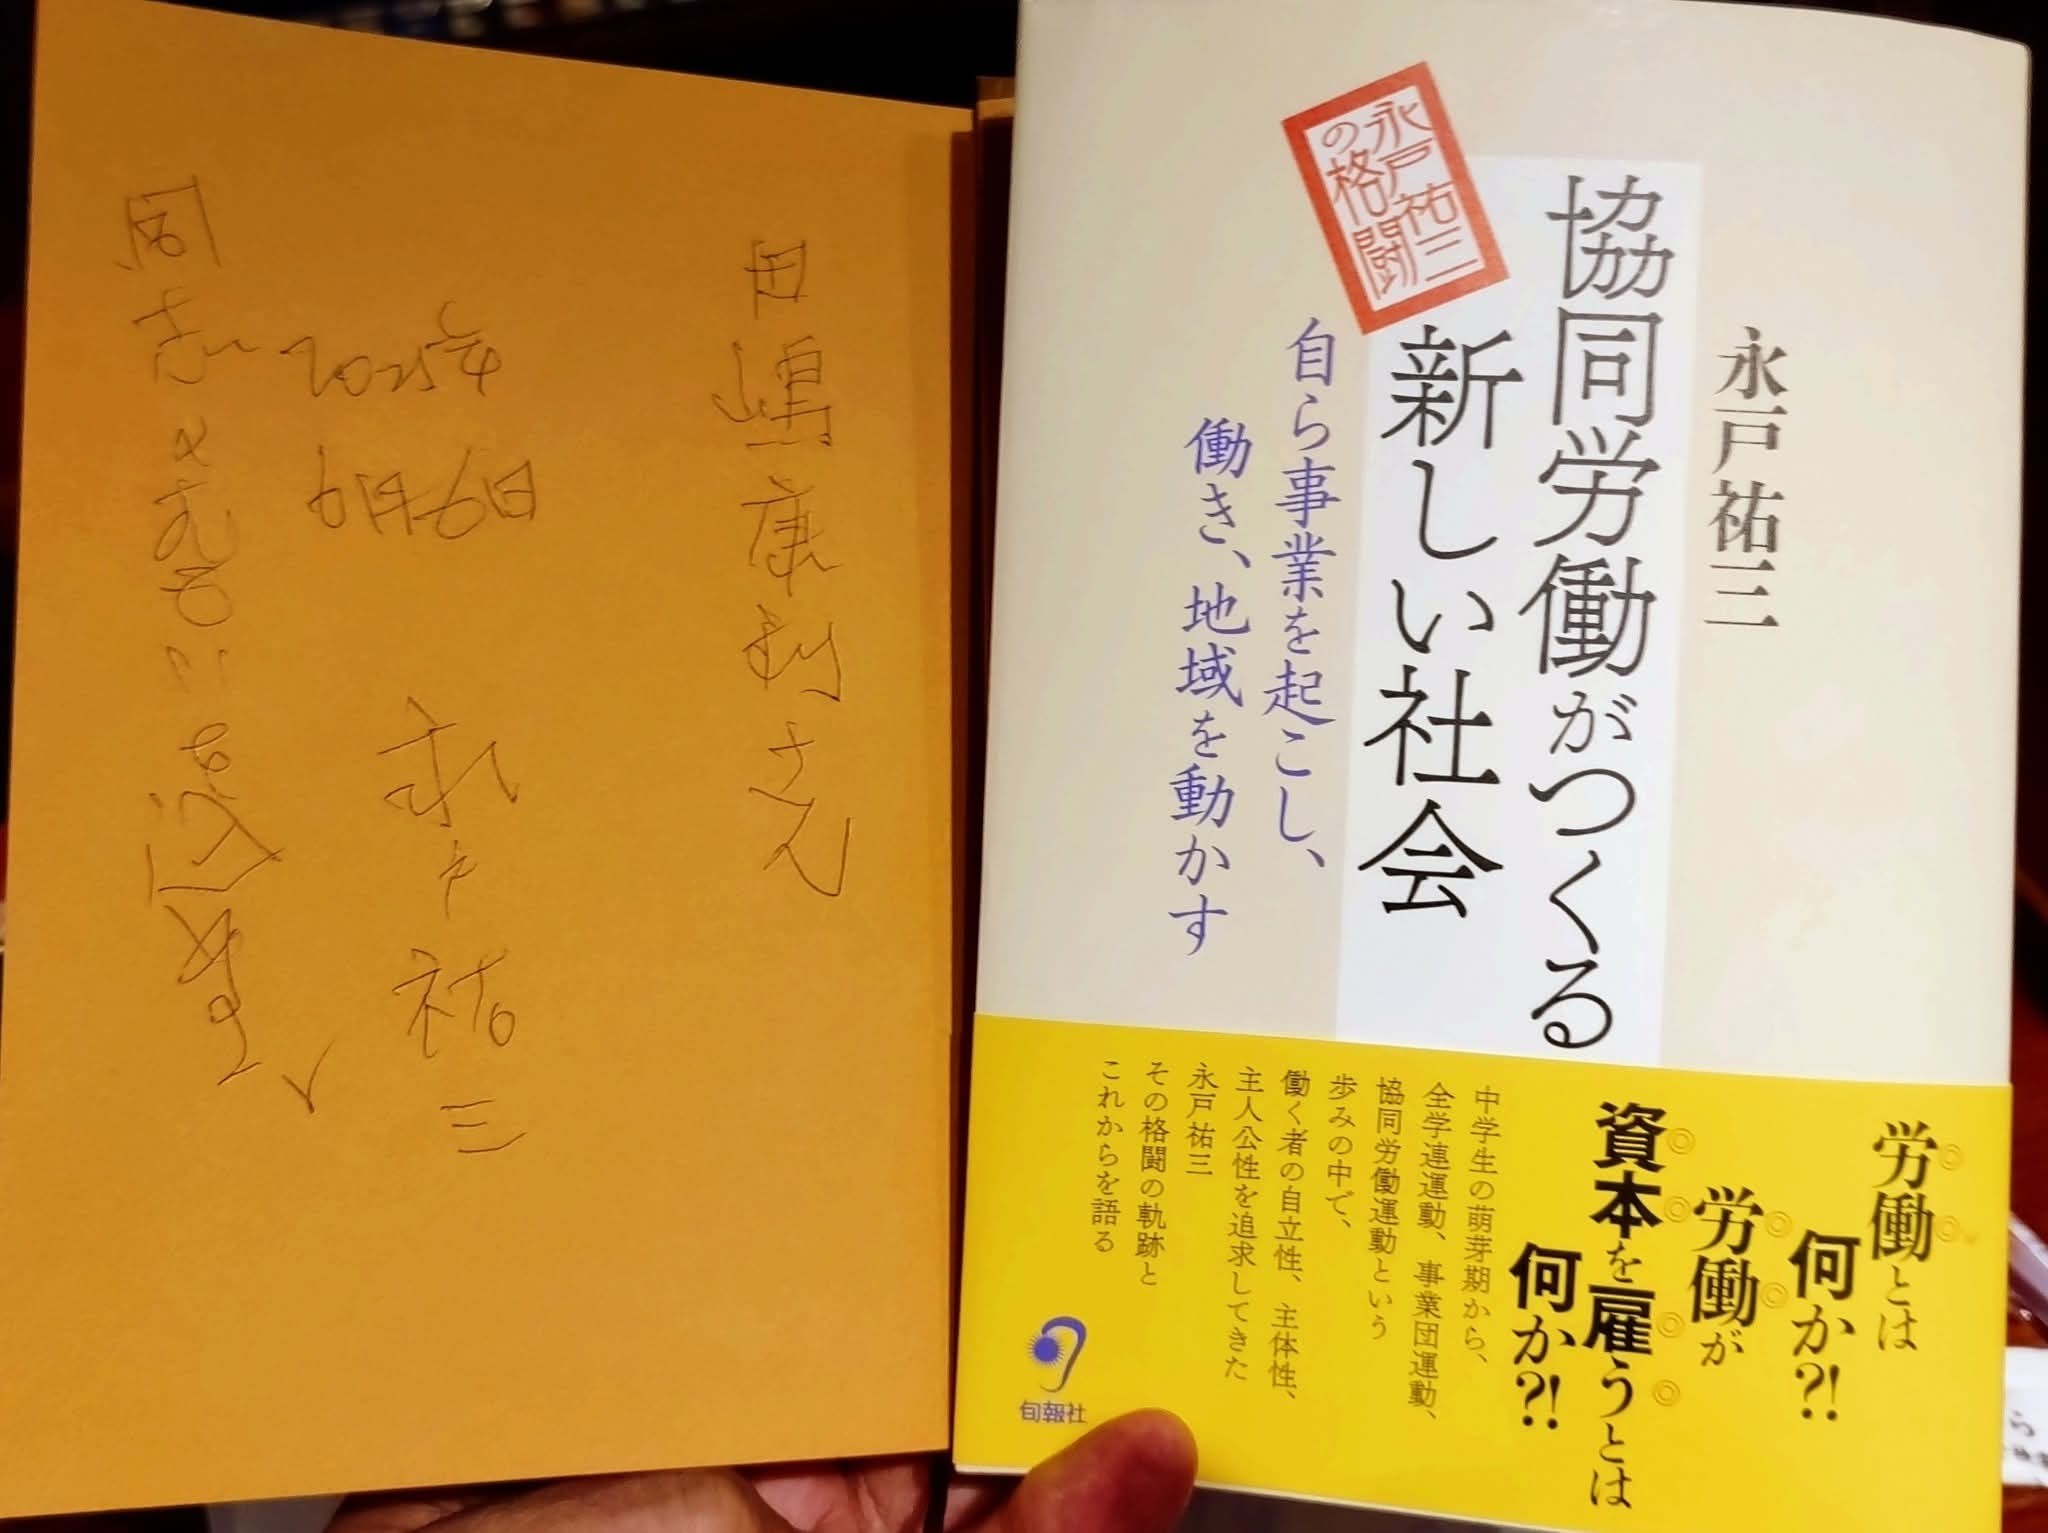 永戸祐三
協同労働がつくる
新しい社会
永戸祐三
の格闘
自ら事業を起こし、
働き、地域を動かす
労働とは
何か?!
労働が
資本を雇うとは
何か?!
中学生の萌芽期から、
全学連運動、事業団運動、
協同労働運動という
歩みの中で、
働く者の自立性、主体性、
主人公性を追求してきた
永戸祐三
その格闘の軌跡と
これからを語る
旬報社
田嶋康利さん
2025年
6月6日
永戸祐三
同志